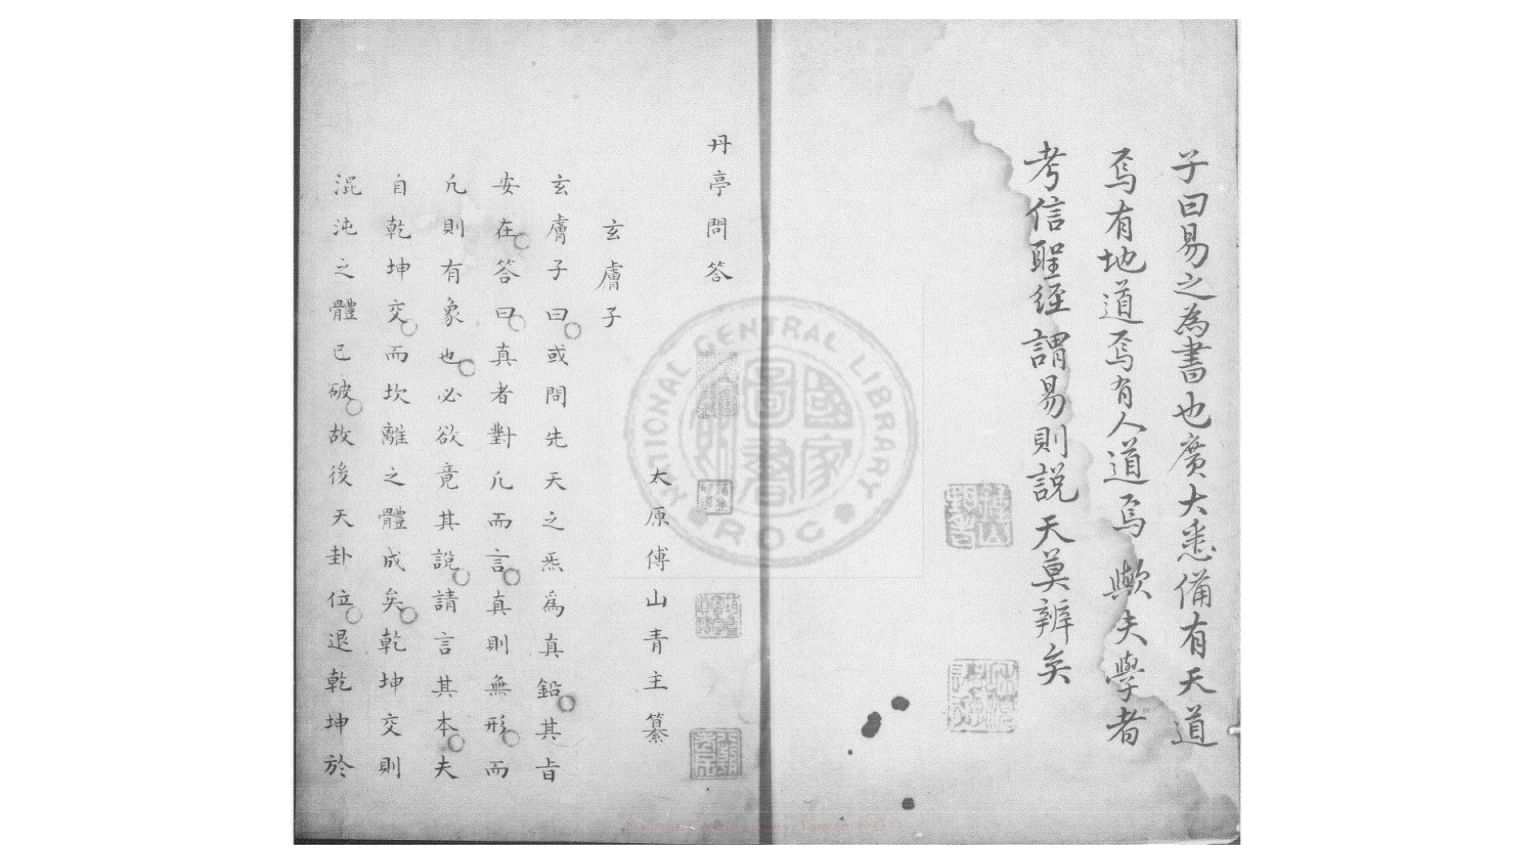 子曰易之為書也廣大悉備有天道
焉有地道焉有人道焉歟夫學者
考信聖經謂易則説天莫辨矣
丹亭問答
太原傅山青主纂
玄膚子
玄膚子曰或問先天之炁爲真鉛其旨
安在答曰真者對凡而言真則無形而
凡則有象也必欲竟其說請言其本夫
自乾坤交而坎離之體成矣乾坤交則
混沌之體已破故後天卦位退乾坤於
NATIONAL CENTRAL LIBRARY
國家圖書
ROC